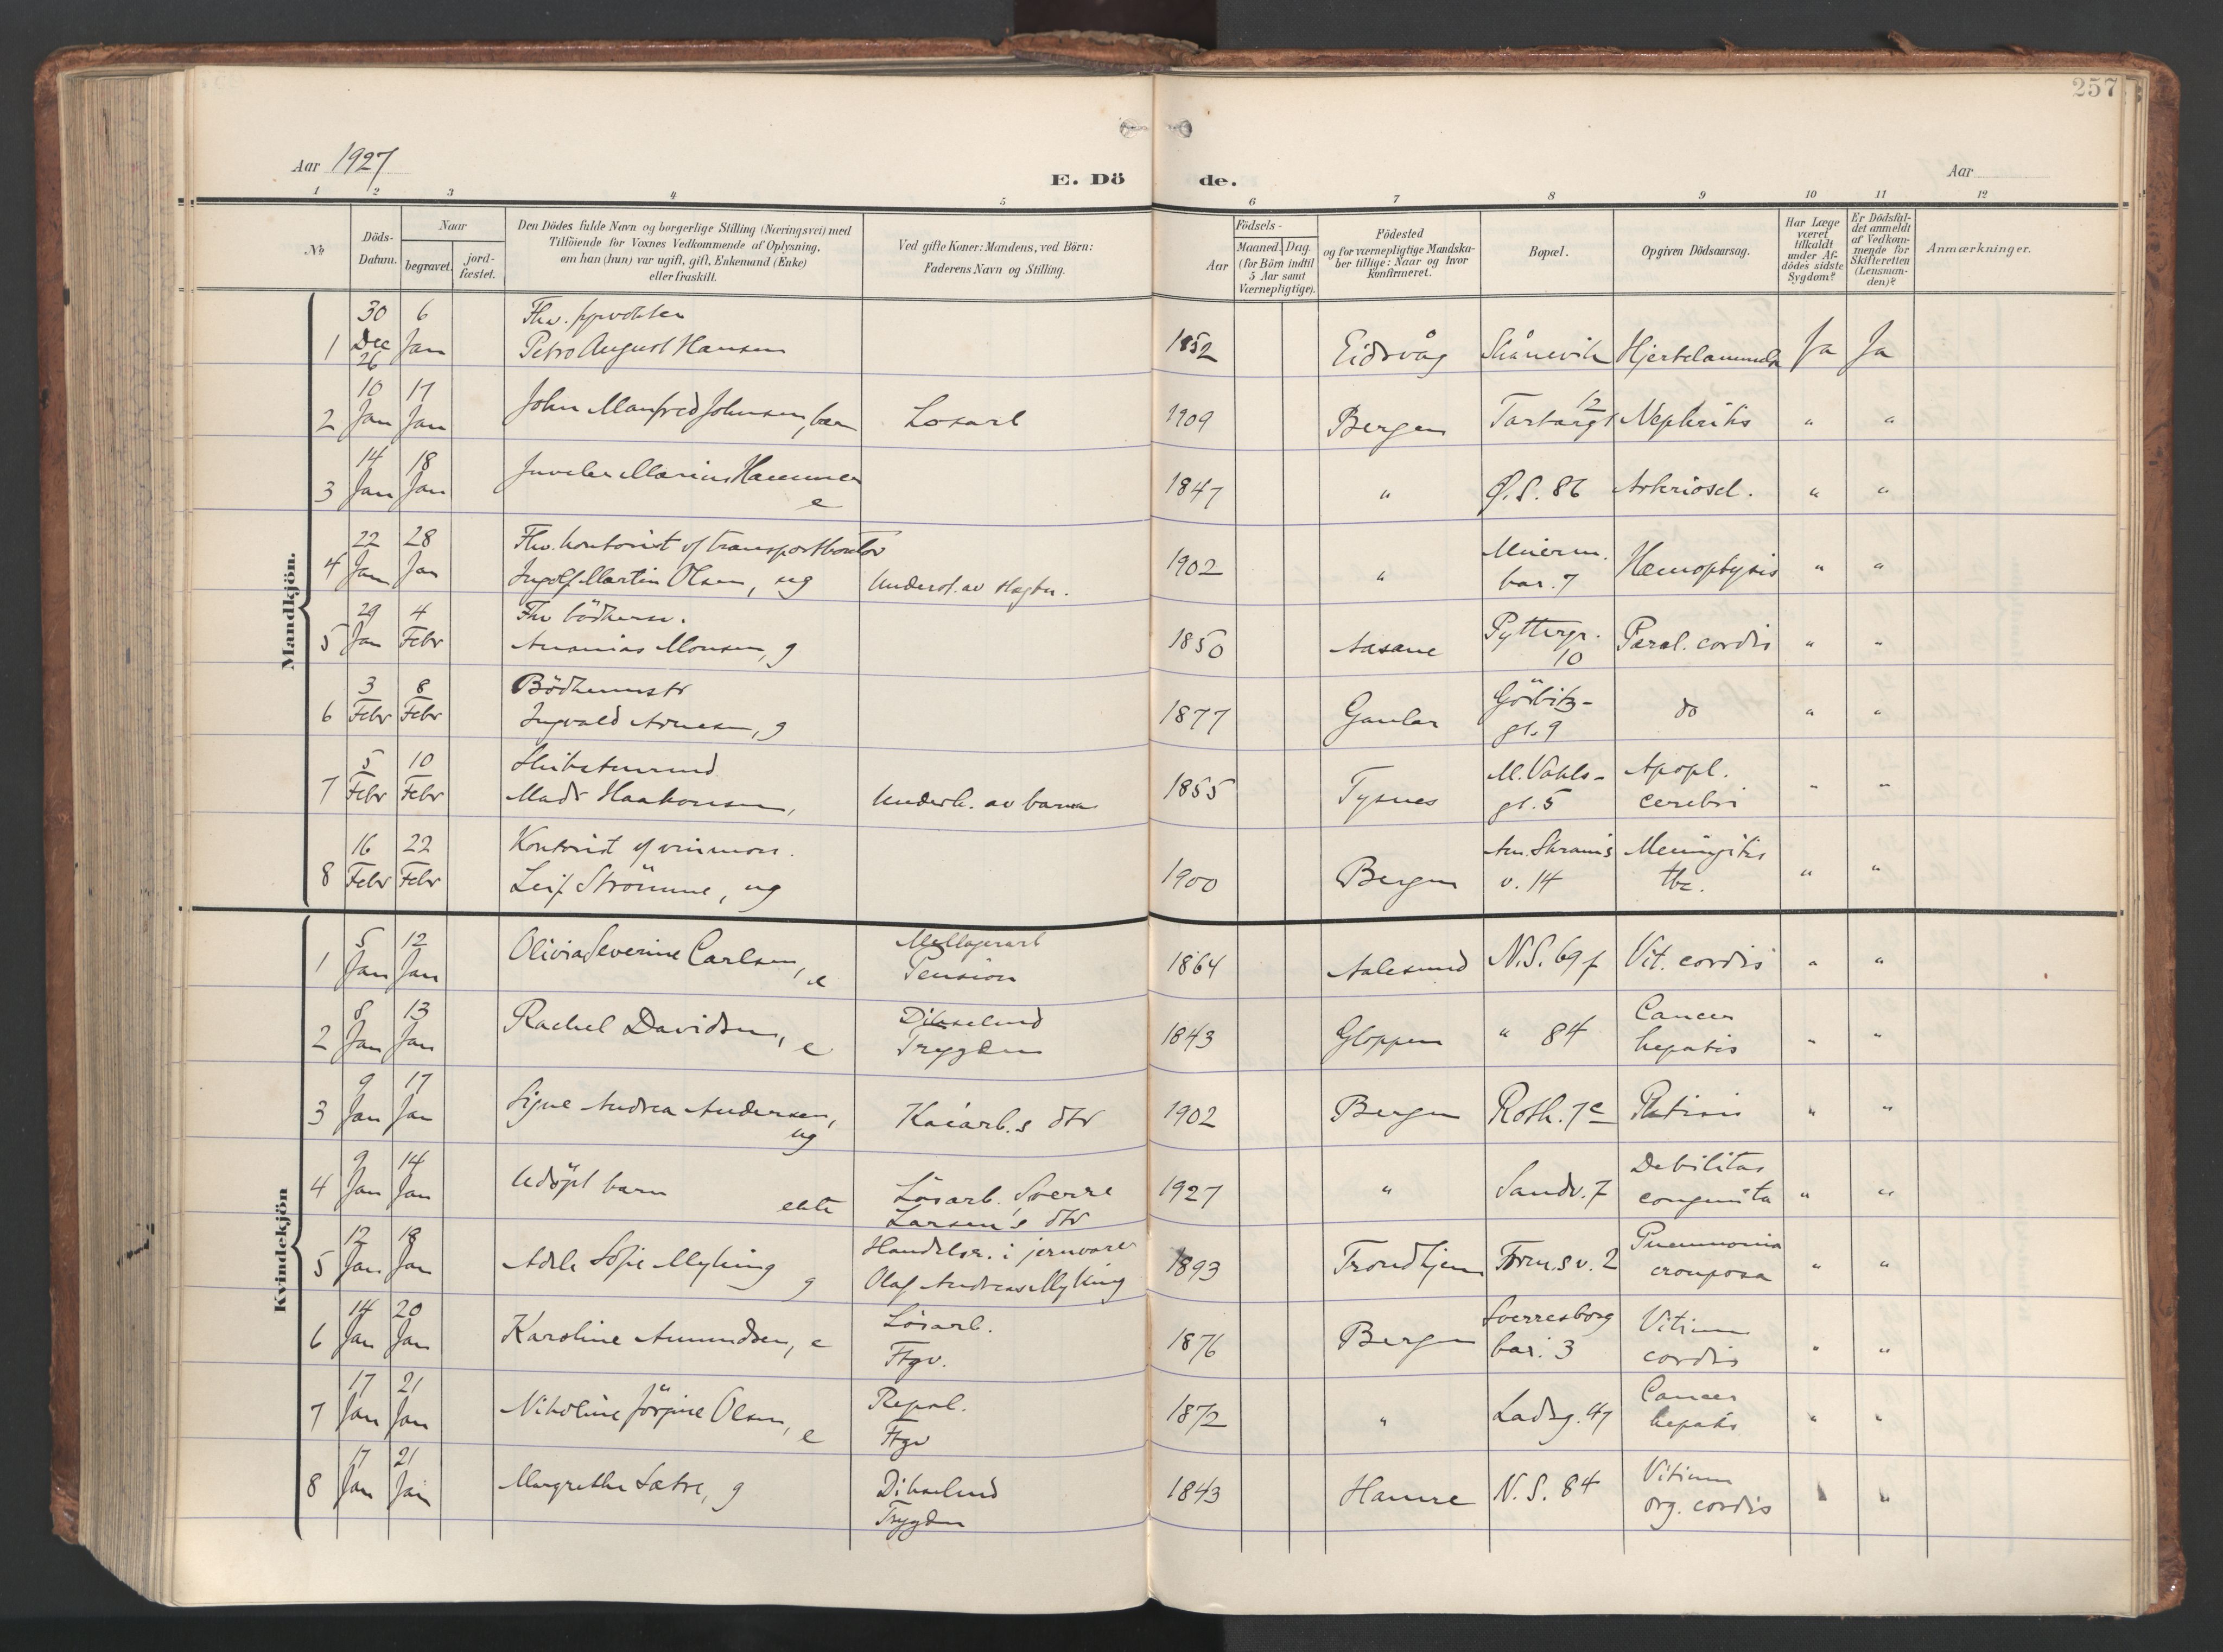 257
Aar 1927
E. Dö de.
Aar
1 2 3 4 5 6 7 8 9 10 11 12
No
Döds-Datum.
Naar
begravet.
jordfæstet.
Den Dödes fulde Navn og borgerlige Stilling (Næringsvei) med
Tilföiende for Voxnes Vedkommende af Oplysning,
om han (hun) var ugift, gift, Enkemand (Enke)
eller fraskilt.
Ved gifte Koner: Mandens, ved Börn:
Faderens Navn og Stilling.
Födsels-
Aar
Maaned. Dag.
(for Börn indtil
5 Aar samt
Værnepligtige).
Födested
og for værnepligtige Mandska-
ber tillige: Naar og hvor
konfirmeret.
Bopæl.
Opgiven Dödsaarsag.
Har Læge
været
tilkaldt
under Af-
dödes sidste
Sygdom?
Er Dödsfal-
det anmeldt
af Vedkom-
mende for
Skifteretten
(Lensman-
den)?
Anmærkninger.
Mandkjön.
1 30 Dec 26 6 Jan Fhv.
Petro August Hansen 1852 Eidsvåg Skånevik Ja Ja
2 10 Jan 17 Jan John Manfred Johnsen, barn Losarb 1909 Bergen 12 Nephritis " "
3 14 Jan 18 Jan Juveler Marius Hammer e 1847 " Ø.S. 86 Arterioscl. " "
4 22 Jan 28 Jan Fhv. kontorist v/ transportkontor
Ingolf Martin Olsen, ug Underst. av slagter. 1902 " bar. 7 Hæmoptysis " "
5 29 Jan 4 Febr Fhv bödkersv.
Ananias Monsen, g 1850 Aasane Pyttergr. 10 Paral. cordis " "
6 3 Febr 8 Febr Bödkermstr
Ingvald Arnesen, g 1877 Gaular Görbitz-
gt. 9 do " "
7 5 Febr 10 Febr
Mads Haakonsen, Underh. av barna 1855 Tysnes M. Vahls-
gt. 5 Apopl.
cerebri " "
8 16 Febr 22 Febr Kontorist v/ vinmon.
Leif Strömme, ug 1900 Bergen Am. Skrams
v. 14 Meningitis
tbc. " "
Kvindekjön
1 5 Jan 12 Jan Olivia Severine Carlsen, e
Pension 1864 Aalesund N.S. 69 f Vit. cordis " "
2 8 Jan 13 Jan Rachel Davidsen, e Dikselend
Trygden 1843 Gloppen " 84 Cancer
hepatis " "
3 9 Jan 17 Jan Signe Andrea Andersen,
ug Kaiarb.s dtr 1902 Bergen Roth. 7c Phtisis " "
4 9 Jan 14 Jan Udöpt barn ekte Lösarb. Sverre
Larsen's dtr 1927 " Sandv. 7 Debilitas
congenita " "
5 12 Jan 18 Jan Adele Sofie Myking g Handelsr. i jernvarer
Olaf Andreas Myking 1893 Trondhjem Form.sv. 2 Pneumonia
crouposa " "
6 14 Jan 20 Jan Karoline Amundsen, e Lösarb.
Ftgv. 1876 Bergen Sverresborg
bar. 3 Vitium
cordis " "
7 17 Jan 21 Jan Nikoline Jörgine Olsen, e Repsl.
Ftgv 1872 " Ladeg. 47 Cancer
hepatis " "
8 17 Jan 21 Jan Margrethe Sætre, g Dikselend
Trygden 1843 Hamre N.S. 84 Vitium
org. cordis " "